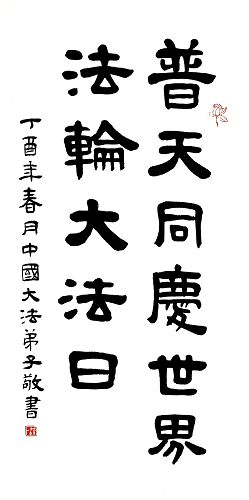 普天同慶世界
法輪大法日
丁酉年春月中國大法弟子敬書